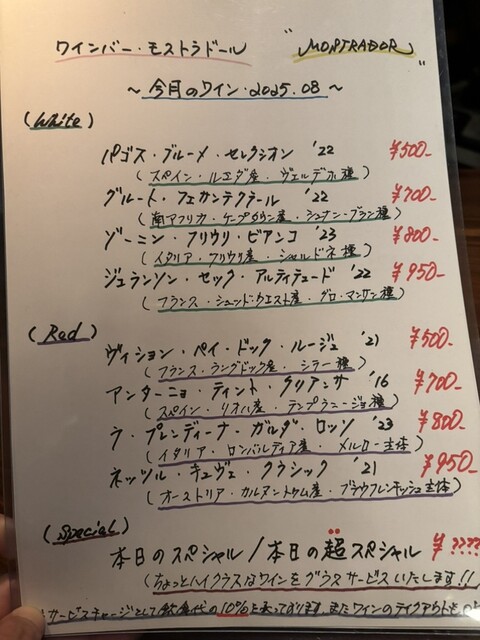 ワインバー・モストラドール "MONTRADOR"
～今月のワイン・2025.08～
(White)
パゴス・ブルーメ・セレクシオン '22 ¥500-
(スペイン・ルエダ産・ヴェルデホ種)
グルート・フェカンテクテール '22 ¥700-
(南アフリカ・ケープタウン産・シュナン・ブラン種)
ゾーニン・フリウリ・ビアンコ '23 ¥800-
(イタリア・フリウリ産・シャルドネ種)
ジュランソン・セック・アルティテュード '22 ¥950-
(フランス・シュッド・ウエスト産・グロ・マンサン種)
(Red)
ヴィジョン・ペイ・ドック・ルージュ '21 ¥500-
(フランス・ラングドック産・シラー種)
アンターニョ・ティント・クリアンサ '16 ¥700-
(スペイン・リオハ産・テンプラニージョ種)
ラ・プレンディーナ・ガルダ・ロッソ '23 ¥800-
(イタリア・ロンバルディア産・メルロー主体)
ネッツル・キュヴェ・クラシック '21 ¥950-
(オーストリア・カルヌントゥム産・ブラウフレンキッシュ主体)
(Special)
本日のスペシャル/本日の超スペシャル ¥????
(ちょっとハイクラスなワインをグラスサービスいたします!!)
サービスチャージとして飲食代の10%を頂いております。またワインのテイクアウトも